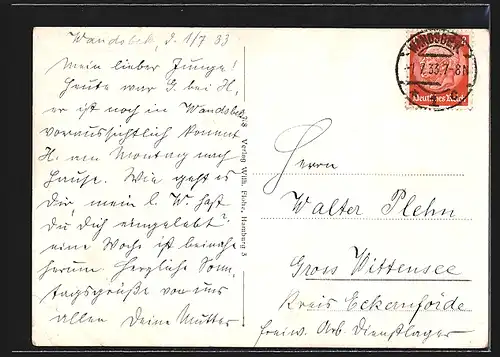 Wandsbek, d. 1/7 33
Mein lieber Junge!
Heute war G. bei H,
er ist noch in Wandsbek,
voraussichtlich kommt
H. am Montag nach
Hause. Wie geht es
Dir, mein l. W. hast
du Dich eingelebt?
eine Woche ist beinahe
herum. Herzliche Sonn
tagsgrüße von uns
allen Deine Mutter
Verlag Wilh. Hamburg 3
WANDSBEK
1.7.33.7-8N
Deutsches Reich
Herrn
Walter Plehn
Gross Wittensee
Kreis Eckernförde
freiw. Arb. Dienstlager